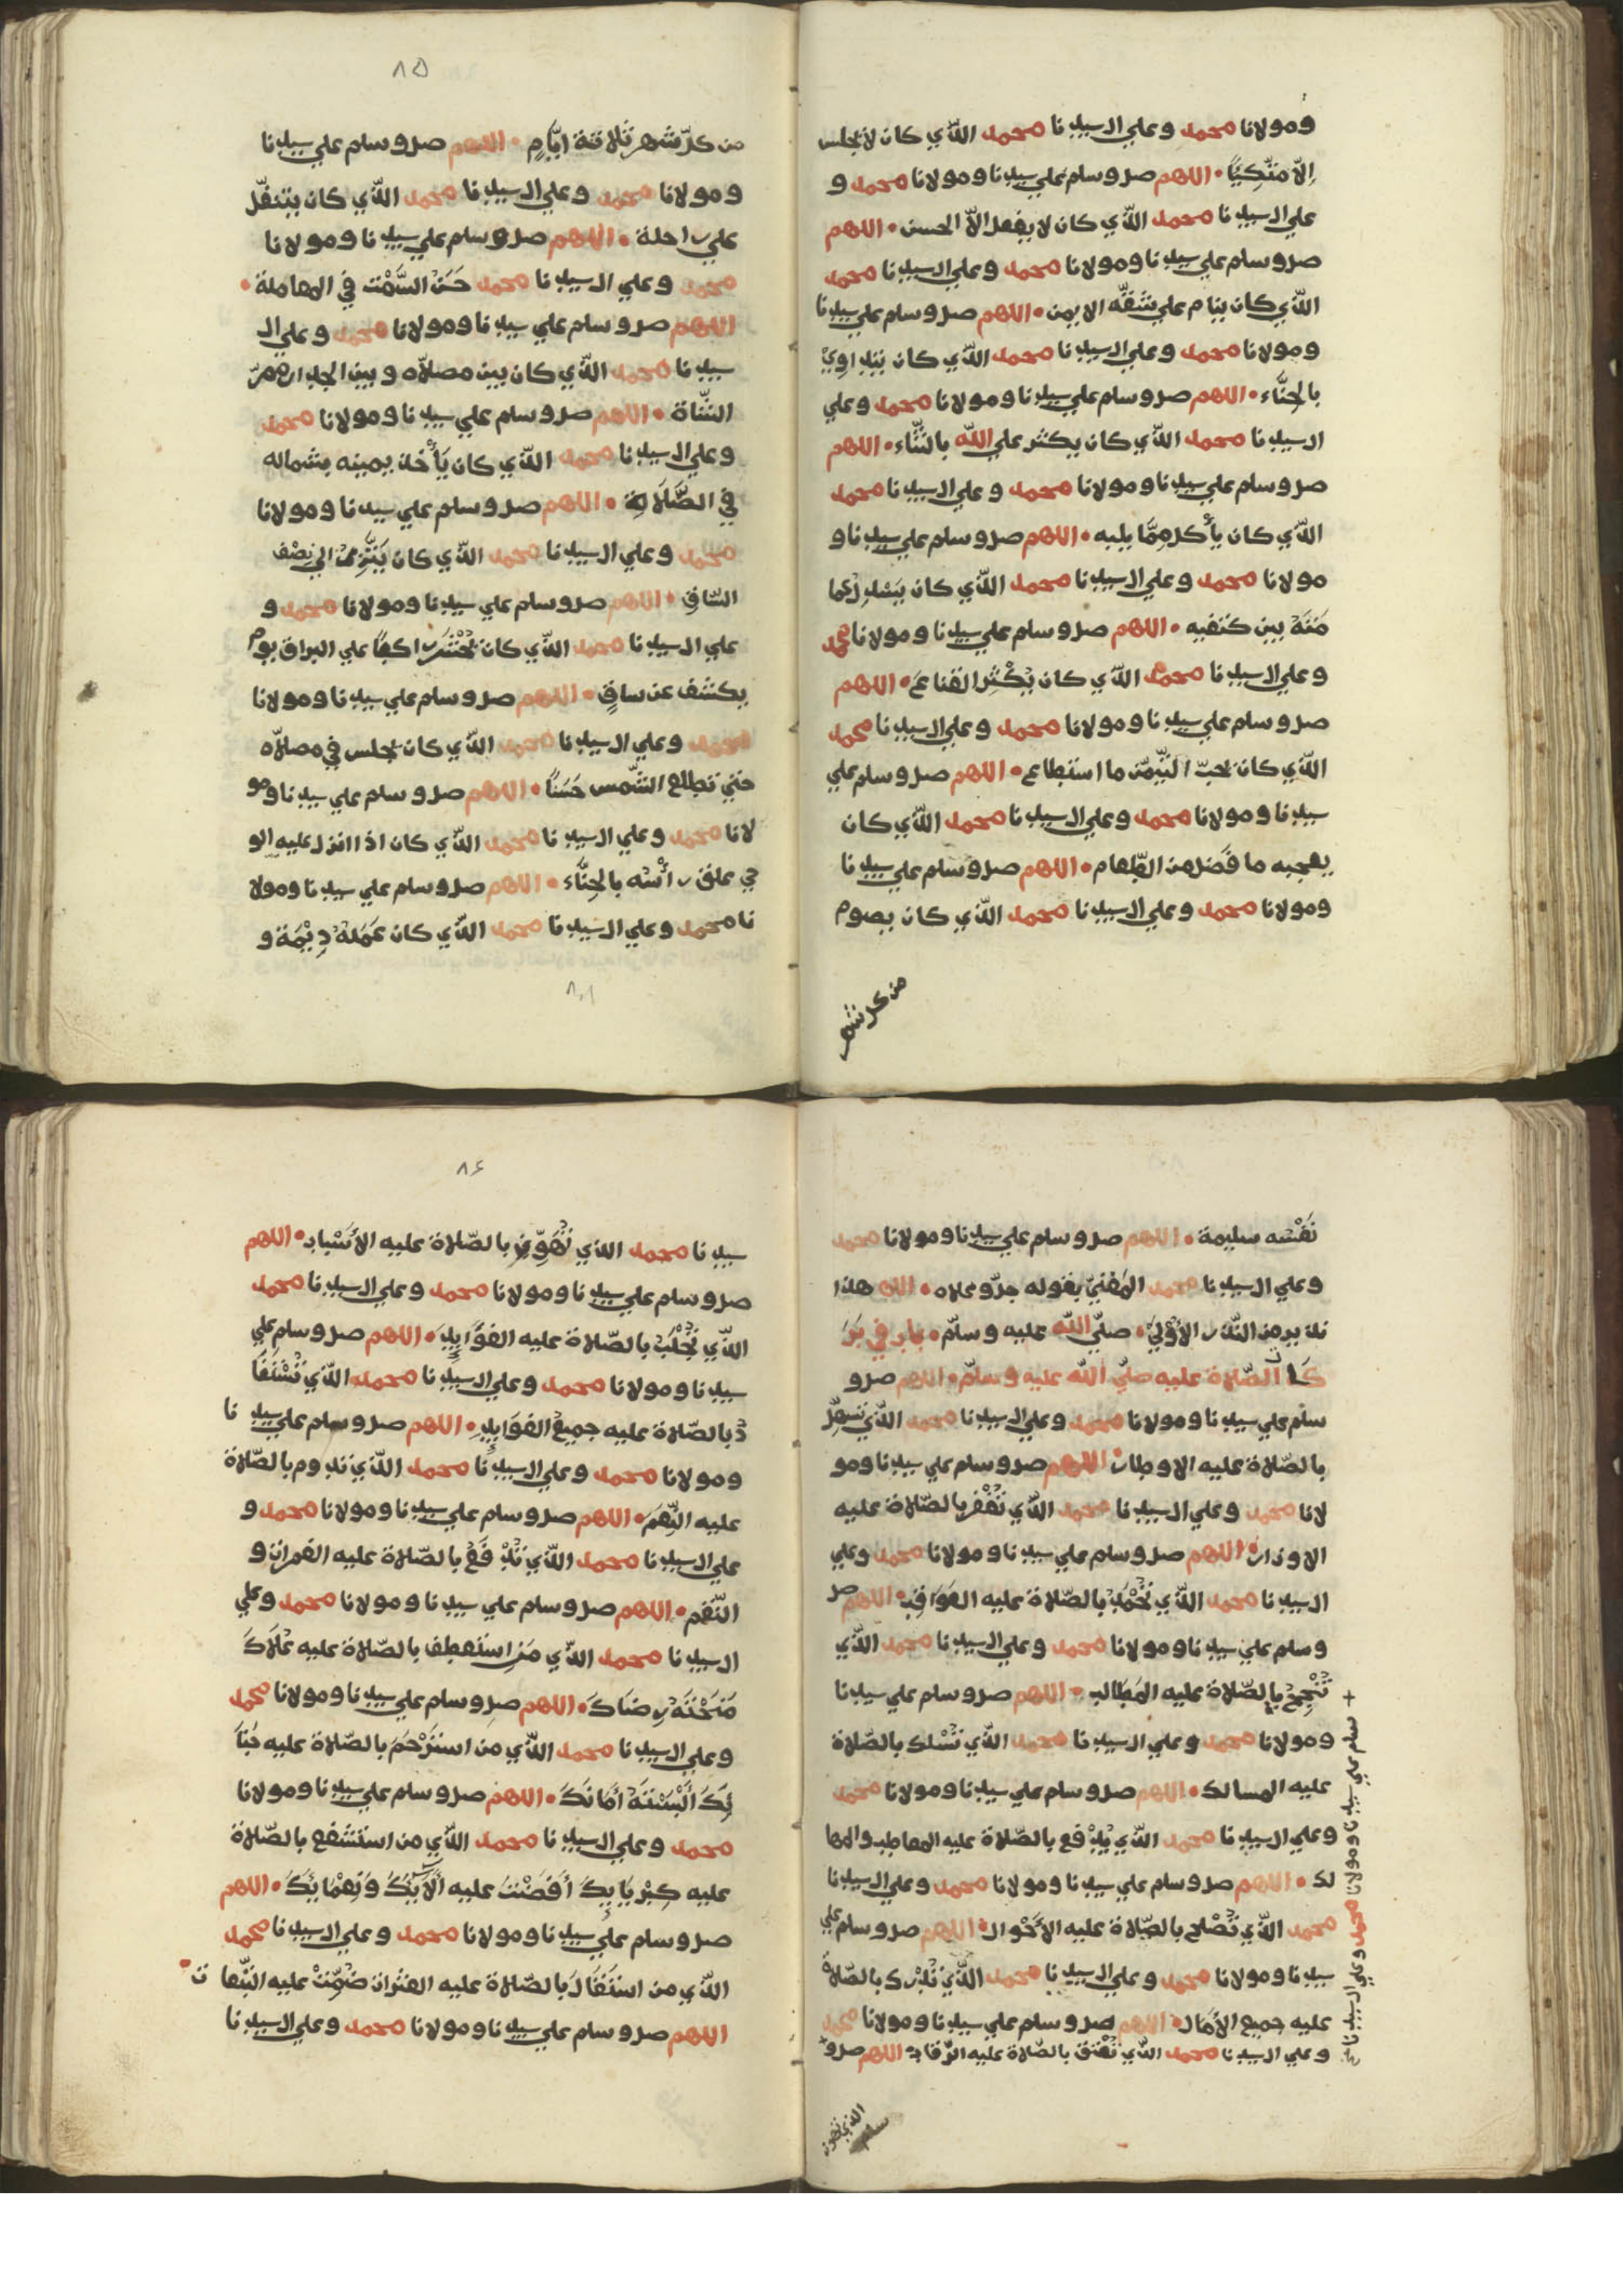 ومولانا محمد وعلي ال سيدنا محمد الذي كان لا يجلس
إلا متكيا • اللهم صل وسلم علي سيدنا ومولانا محمد و
علي ال سيدنا محمد الذي كان لا يفعل الا الحسن • اللهم
صل وسلم علي سيدنا ومولانا محمد وعلي ال سيدنا محمد
الذي كان ينام علي شقه الايمن • اللهم صل وسلم علي سيدنا
ومولانا محمد وعلي ال سيدنا محمد الذي كان يتداوي
بالحناء • اللهم صل وسلم علي سيدنا ومولانا محمد وعلي
ال سيدنا محمد الذي كان يكثر علي الله بالثناء • اللهم
صل وسلم علي سيدنا ومولانا محمد وعلي ال سيدنا محمد
الذي كان يأكل مما يليه • اللهم صل وسلم علي سيدنا و
مولانا محمد وعلي ال سيدنا محمد الذي كان يسدل عما
مته بين كتفيه • اللهم صل وسلم علي سيدنا ومولانا محمد
وعلي ال سيدنا محمد الذي كان يكثر القناع • اللهم
صل وسلم علي سيدنا ومولانا محمد وعلي ال سيدنا محمد
الذي كان يحب التيمن ما استطاع • اللهم صل وسلم علي
سيدنا ومولانا محمد وعلي ال سيدنا محمد الذي كان
يعجبه ما فضل من الطعام • اللهم صل وسلم علي سيدنا
ومولانا محمد وعلي ال سيدنا محمد الذي كان يصوم
من كل شهر
٨٥
من كل شهر ثلاثة ايام • اللهم صل وسلم علي سيدنا
ومولانا محمد وعلي ال سيدنا محمد الذي كان يتنفل
علي راحلة • اللهم صل وسلم علي سيدنا ومولانا
محمد وعلي ال سيدنا محمد حسن السمت في المعاملة •
اللهم صل وسلم علي سيدنا ومولانا محمد وعلي ال
سيدنا محمد الذي كان بين مصلاه وبين الجدار ممر
الشاة • اللهم صل وسلم علي سيدنا ومولانا محمد
وعلي ال سيدنا محمد الذي كان يأخذ يمينه بشماله
في الصلاة • اللهم صل وسلم علي سيدنا ومولانا
محمد وعلي ال سيدنا محمد الذي كان يتزر الي نصف
الساق • اللهم صل وسلم علي سيدنا ومولانا محمد و
علي ال سيدنا محمد الذي كان يحشر راكبا علي البراق يوم
يكشف عن ساق • اللهم صل وسلم علي سيدنا ومولانا
محمد وعلي ال سيدنا محمد الذي كان يجلس في مصلاه
حتي تطلع الشمس حسنا • اللهم صل وسلم علي سيدنا ومو
لانا محمد وعلي ال سيدنا محمد الذي كان اذا انزل عليه الو
حي علف راسه بالحناء • اللهم صل وسلم علي سيدنا ومولا
نا محمد وعلي ال سيدنا محمد الذي كان عمله ديمة و
نفسه سليمة • اللهم صل وسلم علي سيدنا ومولانا محمد
وعلي ال سيدنا محمد المعني بقوله جل وعلاه • الله هذا
نذير من النذر الأولي • صلي الله عليه وسلم • باب في بر
كة الصلاة عليه صلي الله عليه وسلم • اللهم صل و
سلم علي سيدنا ومولانا محمد وعلي ال سيدنا محمد الذي تسهل
بالصلاة عليه الاوطار • اللهم صل وسلم علي سيدنا ومو
لانا محمد وعلي ال سيدنا محمد الذي تغفر بالصلاة عليه
الاوزار • اللهم صل وسلم علي سيدنا ومولانا محمد وعلي
ال سيدنا محمد الذي تحمد بالصلاة عليه العواقب • اللهم صل
وسلم علي سيدنا ومولانا محمد وعلي ال سيدنا محمد الذي
تنجح بالصلاة عليه المطالب • اللهم صل وسلم علي سيدنا
ومولانا محمد وعلي ال سيدنا محمد الذي تسلك بالصلاة
عليه المسالك • اللهم صل وسلم علي سيدنا ومولانا محمد
وعلي ال سيدنا محمد الذي يدفع بالصلاة عليه المعاطب والمها
لك • اللهم صل وسلم علي سيدنا ومولانا محمد وعلي ال سيدنا
محمد الذي تصلح بالصلاة عليه الأحوال • اللهم صل وسلم علي
سيدنا ومولانا محمد وعلي ال سيدنا محمد الذي تدرك بالصلاة
عليه جميع الآمال • اللهم صل وسلم علي سيدنا ومولانا محمد
وعلي ال سيدنا محمد الذي تعتق بالصلاة عليه الرقاب • اللهم صل و
سلم علي سيدنا ومولانا محمد وعلي ال سيدنا
سلم
٨٦
سيدنا محمد الذي تهون بالصلاة عليه الأسباب • اللهم
صل وسلم علي سيدنا ومولانا محمد وعلي ال سيدنا محمد
الذي تجلب بالصلاة عليه الفوايد • اللهم صل وسلم علي
سيدنا ومولانا محمد وعلي ال سيدنا محمد الذي تستفا
د بالصلاة عليه جميع الفوايد • اللهم صل وسلم علي سيدنا
ومولانا محمد وعلي ال سيدنا محمد الذي تدوم بالصلاة
عليه النعم • اللهم صل وسلم علي سيدنا ومولانا محمد و
علي ال سيدنا محمد الذي تدفع بالصلاة عليه الغمرات و
النقم • اللهم صل وسلم علي سيدنا ومولانا محمد وعلي
ال سيدنا محمد الذي من استعطف بالصلاة عليه علاك
منحته رضاك • اللهم صل وسلم علي سيدنا ومولانا محمد
وعلي ال سيدنا محمد الذي من استرحم بالصلاة عليه حنا
نك ألبسته أمانك • اللهم صل وسلم علي سيدنا ومولانا
محمد وعلي ال سيدنا محمد الذي من استشفع بالصلاة
عليه كبريايك أفضت عليه ألايك ونعمايك • اللهم
صل وسلم علي سيدنا ومولانا محمد وعلي ال سيدنا محمد
الذي من استقال بالصلاة عليه العثرات ضمنت عليه التبعات •
اللهم صل وسلم علي سيدنا ومولانا محمد وعلي ال سيدنا